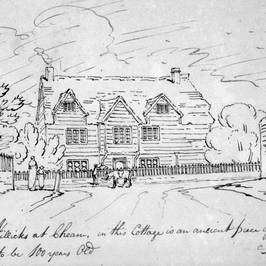 at Cheam, in this Cottage is an ancient piece
to be 100 years Old